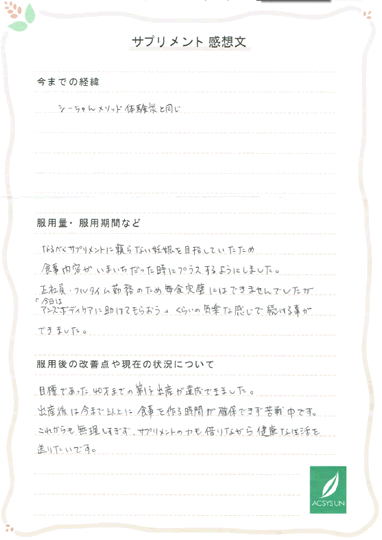 サプリメント 感想文
今までの経緯
シーちゃんメソッド体験談と同じ
服用量・服用期間など
なるべくサプリメントに頼らない妊娠を目指していたため
食事内容がいまいちだった時にプラスするようにしました。
正社員・フルタイム勤務のため毎食完璧にはできませんでしたが
「今日は
アンズボディケアに助けてもらおう」くらいの気楽な感じで続ける事が
できました。
服用後の改善点や現在の状況について
目標であった40才までの第1子出産が達成できました。
出産後は今まで以上に食事を作る時間が確保できず苦戦中です。
これからも無理しすぎず、サプリメントの力も借りながら健康な生活を
送りたいです。
ACSYSUN